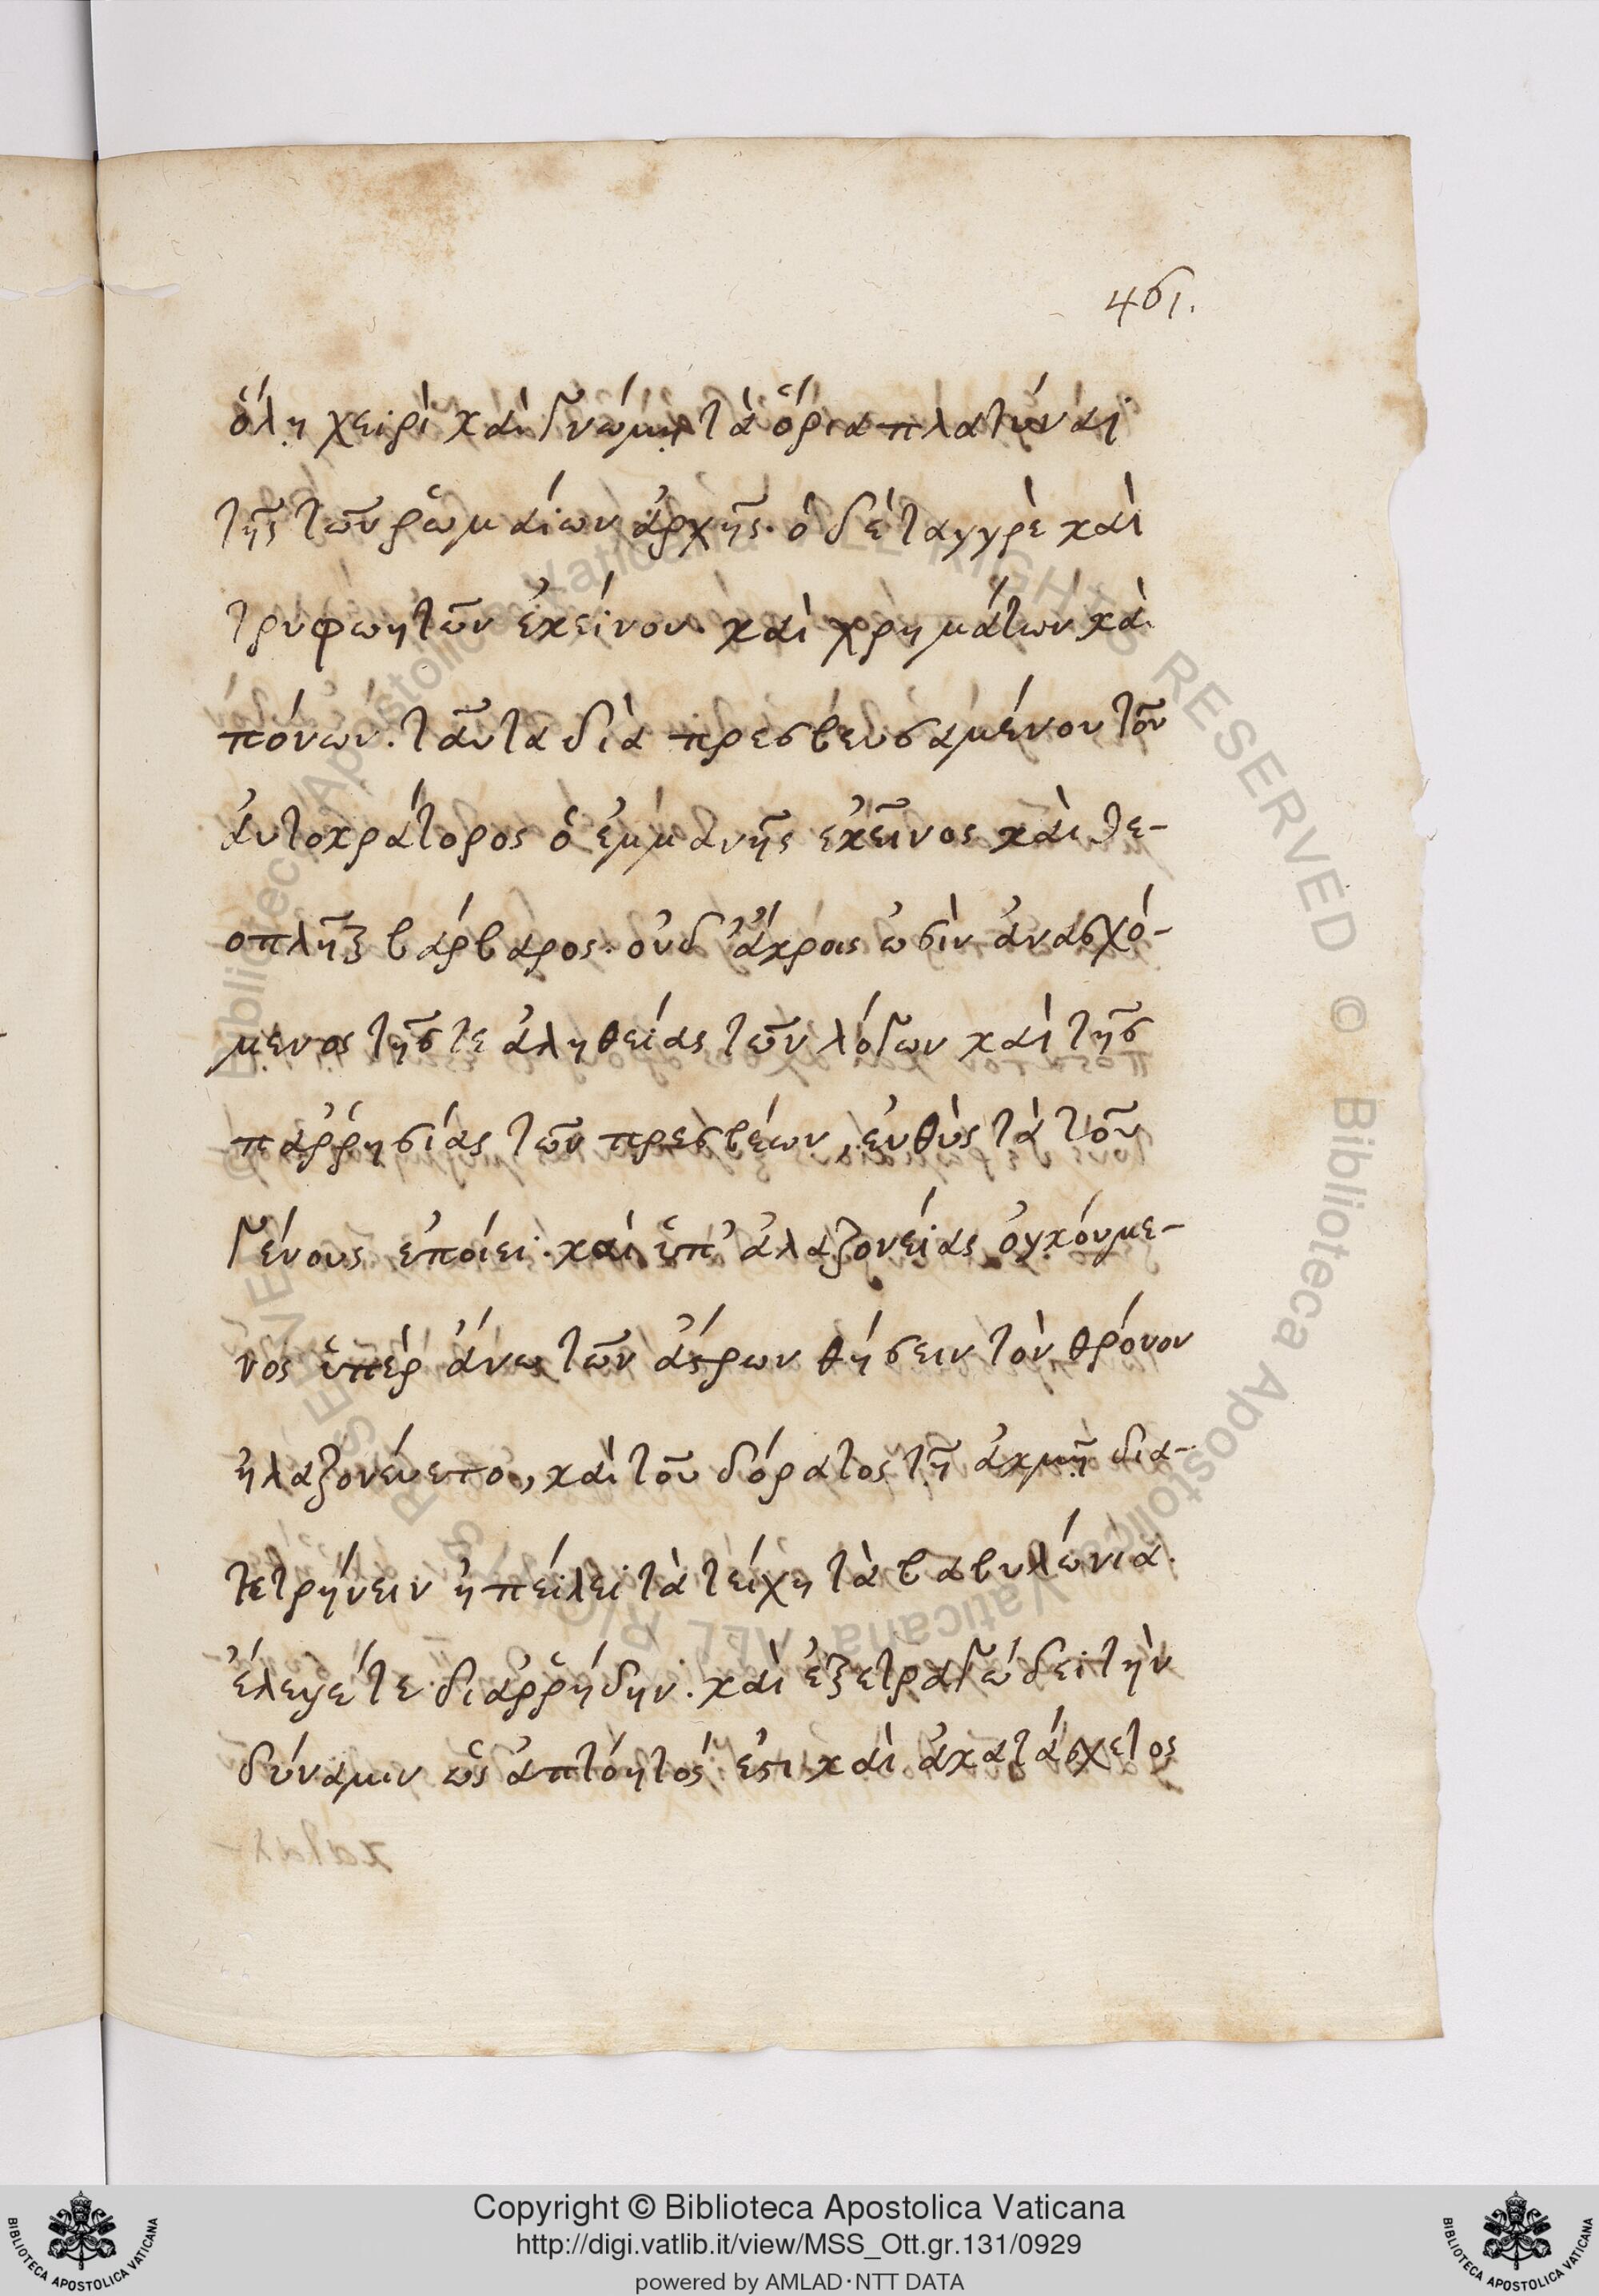 461.
ὅλῃ χειρὶ καὶ γνώμῃ τὰ ὅρια πλατύναι
τῆς τῶν ῥωμαίων ἀρχῆς. ὁ δὲ ταγγρὲ καὶ
τρυφωητῶν ἐκείνου. καὶ χρημάτων κὰ
πόνων. ταῦτα διὰ πρεσβευσαμένου τοῦ
ἀυτοκράτορος ὁ ἐμμανῆς ἐκεῖνος καὶ θε-
οπλῆξ βάρβαρος. οὐδ᾽ ἄκραις ὠσὶν ἀνασχό-
μενος τῆς τε ἀληθείας τῶν λόγων καὶ τῆς
παῤῥησίας τῶν πρεσβέων, ἐυθὺς τὰ τοῦ
γένους ἐποίει. καὶ ὑπ᾽ ἀλαζονείας ὀγκόυμε-
νος ὑπὲρ ἄνω τῶν ἄστρων θήσειν τὸν θρόνον
ἠλαζονέυετο, καὶ τοῦ δόρατος τῇ ἀκμῇ δια-
τετρήνειν ἠπείλει τὰ τείχη τὰ βαβυλώνια.
ἔλεγέ τε διαῤῥήδην. καὶ ἐξετραγώδει τὴν
δύναμιν ὡς ἀπτόητός ἐστι καὶ ἀκατάσχετος
Copyright © Biblioteca Apostolica Vaticana
http://digi.vatlib.it/view/MSS_Ott.gr.131/0929
powered by AMLAD·NTT DATA
BIBLIOTECA APOSTOLICA VATICANA
BIBLIOTECA APOSTOLICA VATICANA